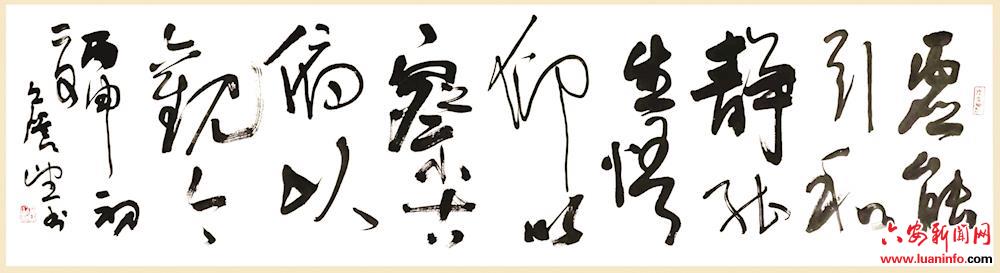 虚能
引和
静能
生悟
仰以
察古
俯以
观今
丙申初
书
六安新闻网
www.luaninfo.com